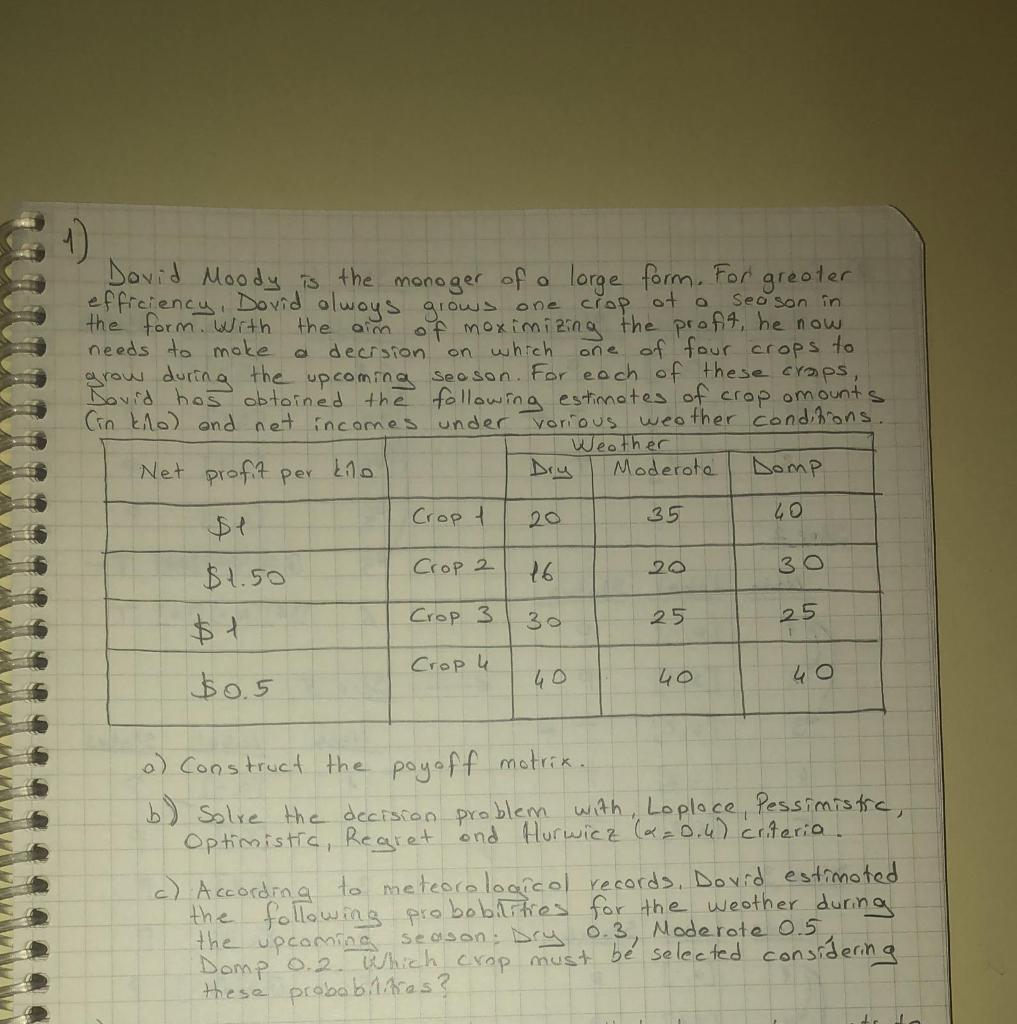 1)
David Moody is the manager of a large farm. For greater
efficiency, David always grows one crop at a season in
the farm. With the aim of maximizing the profit, he now
needs to make a decision on which one of four crops to
grow during the upcoming season. For each of these crops,
David has obtained the following estimates of crop amounts
(in kilo) and net incomes under various weather conditions.
Weather
Net profit per kilo Dry Moderate Damp
$1 Crop 1 20 35 40
$1.50 Crop 2 16 20 30
$1 Crop 3 30 25 25
$0.5 Crop 4 40 40 40
a) Construct the payoff matrix.
b) Solve the decision problem with, Laplace, Pessimistic,
Optimistic, Regret and Hurwicz (α=0.4) criteria.
c) According to meteorological records, David estimated
the following probabilities for the weather during
the upcoming season: Dry 0.3, Moderate 0.5,
Damp 0.2. Which crop must be selected considering
these probabilities?